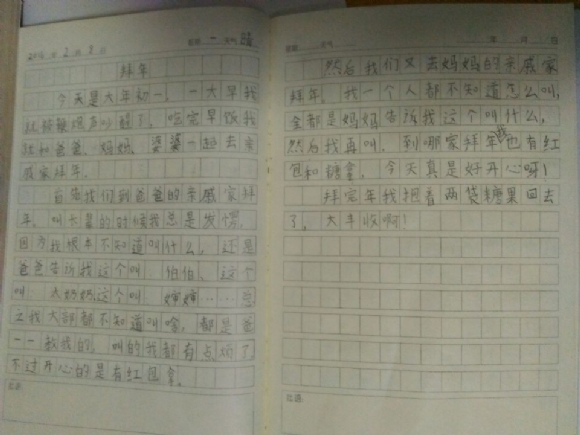 2016年2月8日 星期一 天气晴
拜年
今天是大年初一，一大早我
就被鞭炮声吵醒了，吃完早饭我
就和爸爸、妈妈、婆婆一起去亲
戚家拜年。
首先我们到爸爸的亲戚家拜
年，叫长辈的时候我总是发愣，
因为我根本不知道叫什么，还是
爸爸告诉我这个叫 伯伯、这个
叫 奶奶，这个叫 婶婶……总
之我大部都不知道叫啥，都是爸
一一教我的，叫的我都有点烦了，
不过开心的是有红包拿。
批语:
星期 天气 年 月 日
然后我们又去妈妈的亲戚家
拜年，我一个人都不知道怎么叫，
全都是妈妈告诉我这个叫什么，
然后我再叫，到哪家拜年我也有红
包和糖拿，今天真是好开心呀！
拜完年我把着两袋糖果回去
了，大丰收啊！
批语: